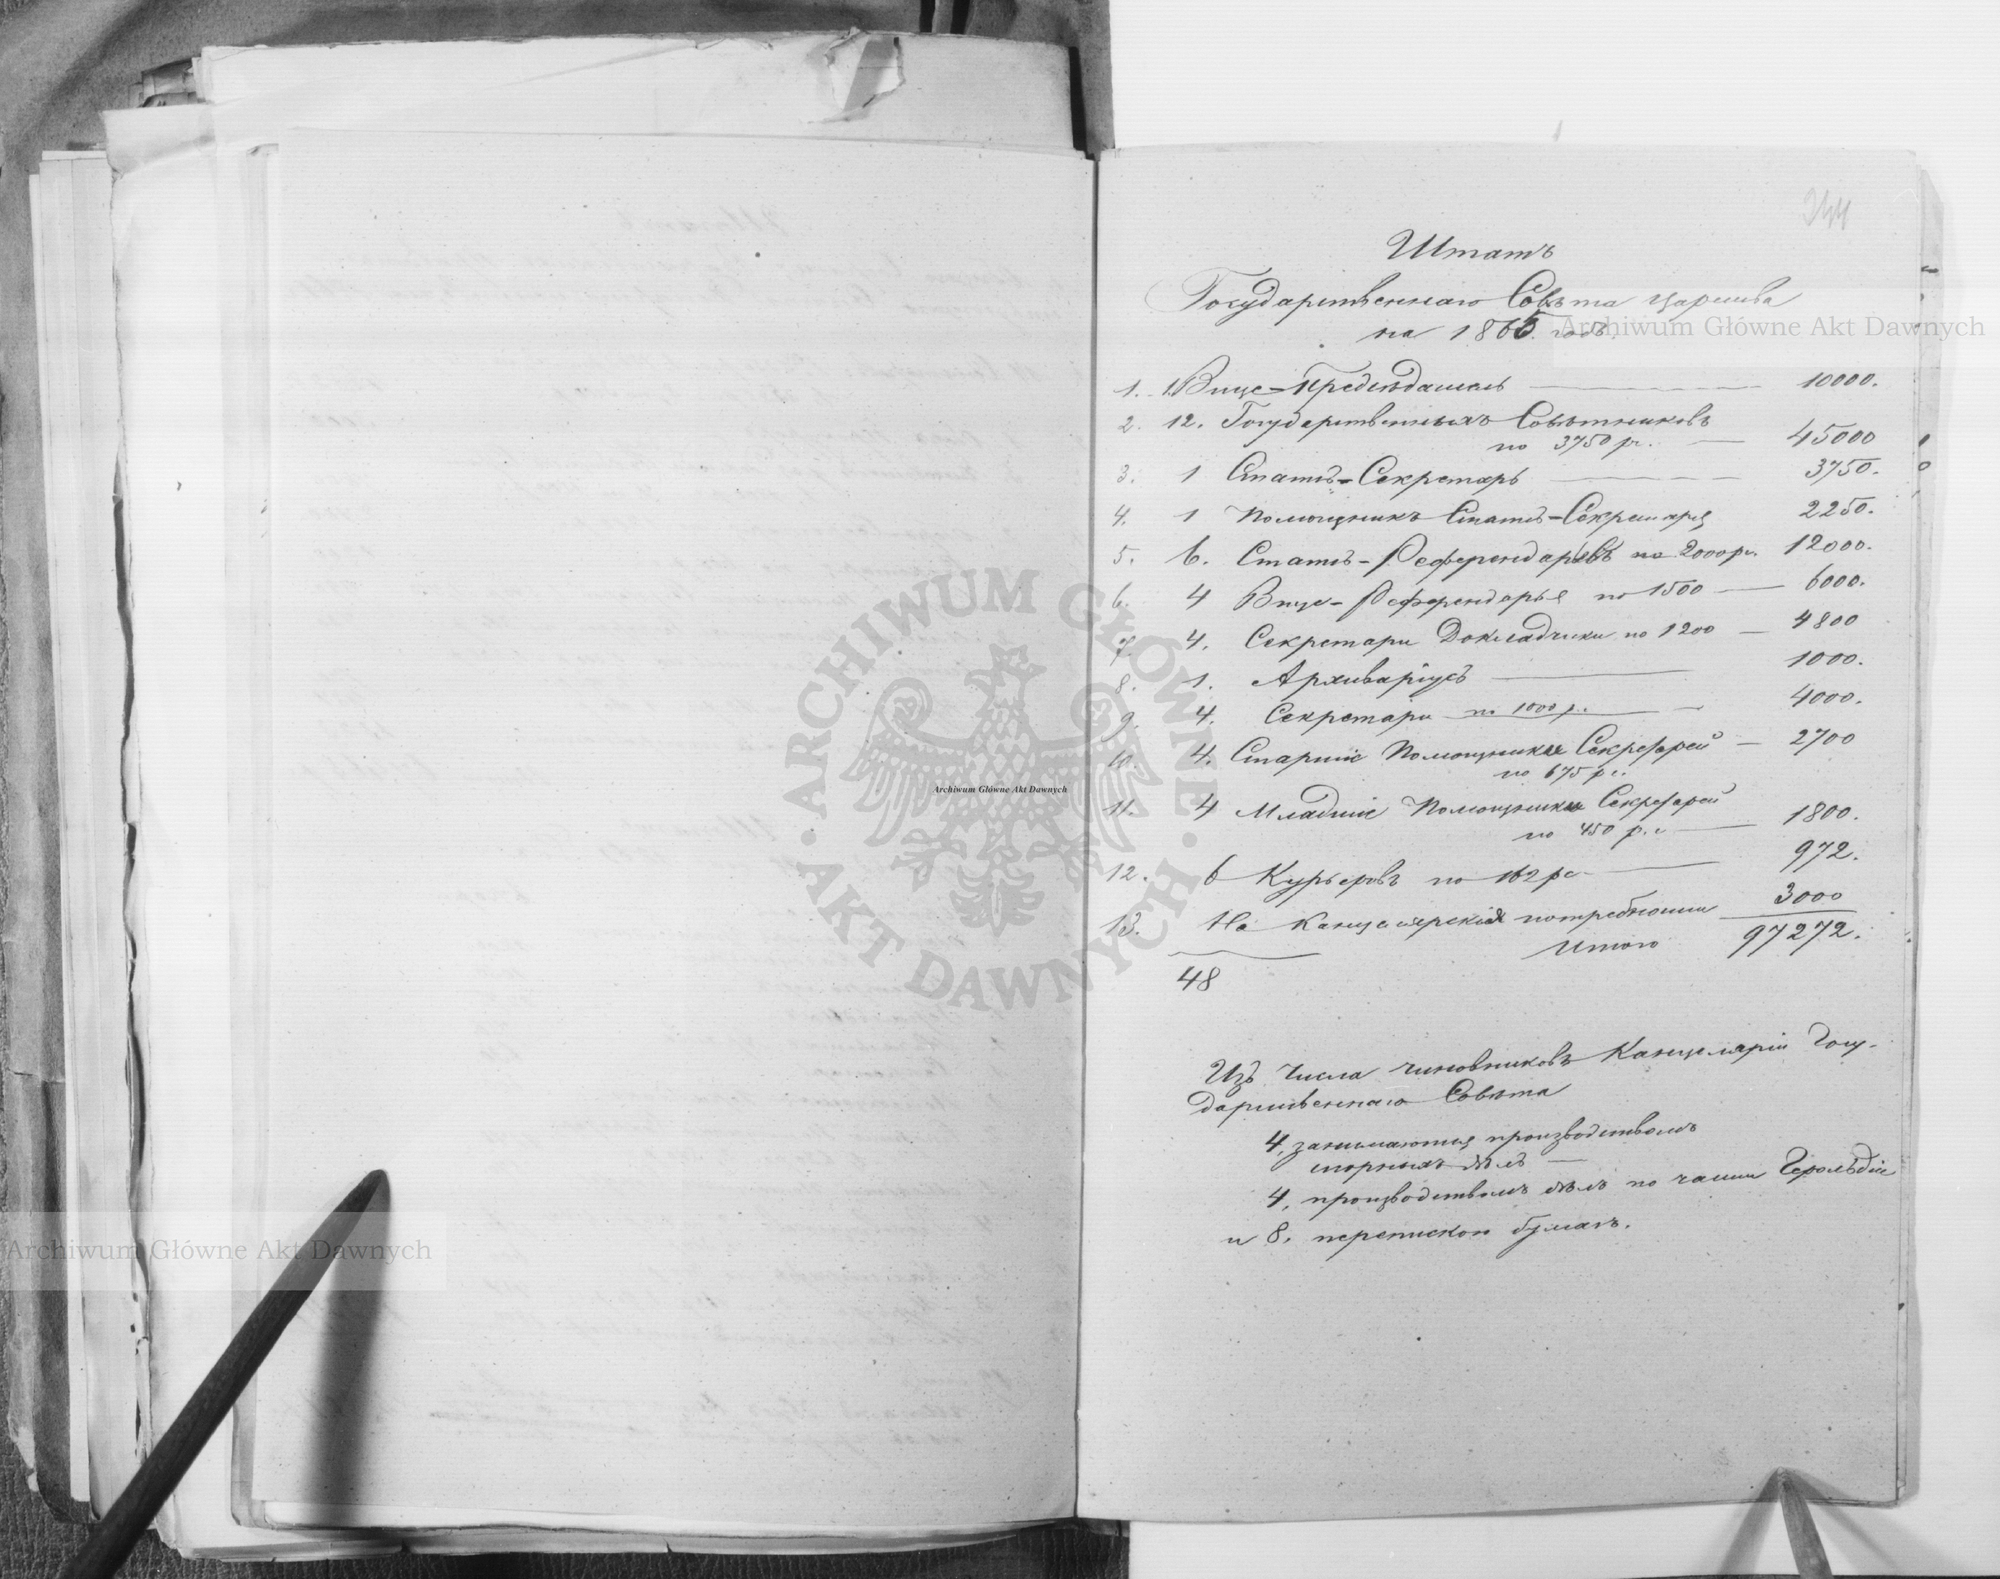 244
Штатъ
Государственнаго Совѣта Царства
на 1865 годъ.
1. 1. Вице-Предсѣдатель 10000.
2. 12. Государственныхъ Совѣтниковъ
по 3750 р. 45000
3. 1 Статсъ-Секретарь 3750.
4. 1 Помощникъ Статсъ-Секретаря 2250.
5. 6. Статсъ-Референдаріевъ по 2000 р. 12000.
6. 4 Вице-Референдарья по 1500 6000.
7. 4. Секретари Докладчики по 1200 4800
8. 1. Архиваріусъ 1000.
9. 4. Секретари по 1000 р. 4000.
10. 4. Старшіе Помощники Секретарей 2700
по 675 рс.
11. 4 Младшіе Помощники Секретарей
по 450 р.с 1800.
12. 6 Курьеровъ по 162 рс 972.
13. На Канцелярскія потребности 3000
Итого 97272.
48
Изъ числа чиновниковъ Канцеляріи Госу-
дарственнаго Совѣта
4, занимаются производствомъ
спорныхъ дѣлъ
4, производствомъ дѣлъ по части Герольдіи
и 8. перепискою бумагъ.
Archiwum Główne Akt Dawnych
Archiwum Główne Akt Dawnych
Archiwum Główne Akt Dawnych
ARCHIWUM GŁÓWNE · AKT DAWNYCH ·